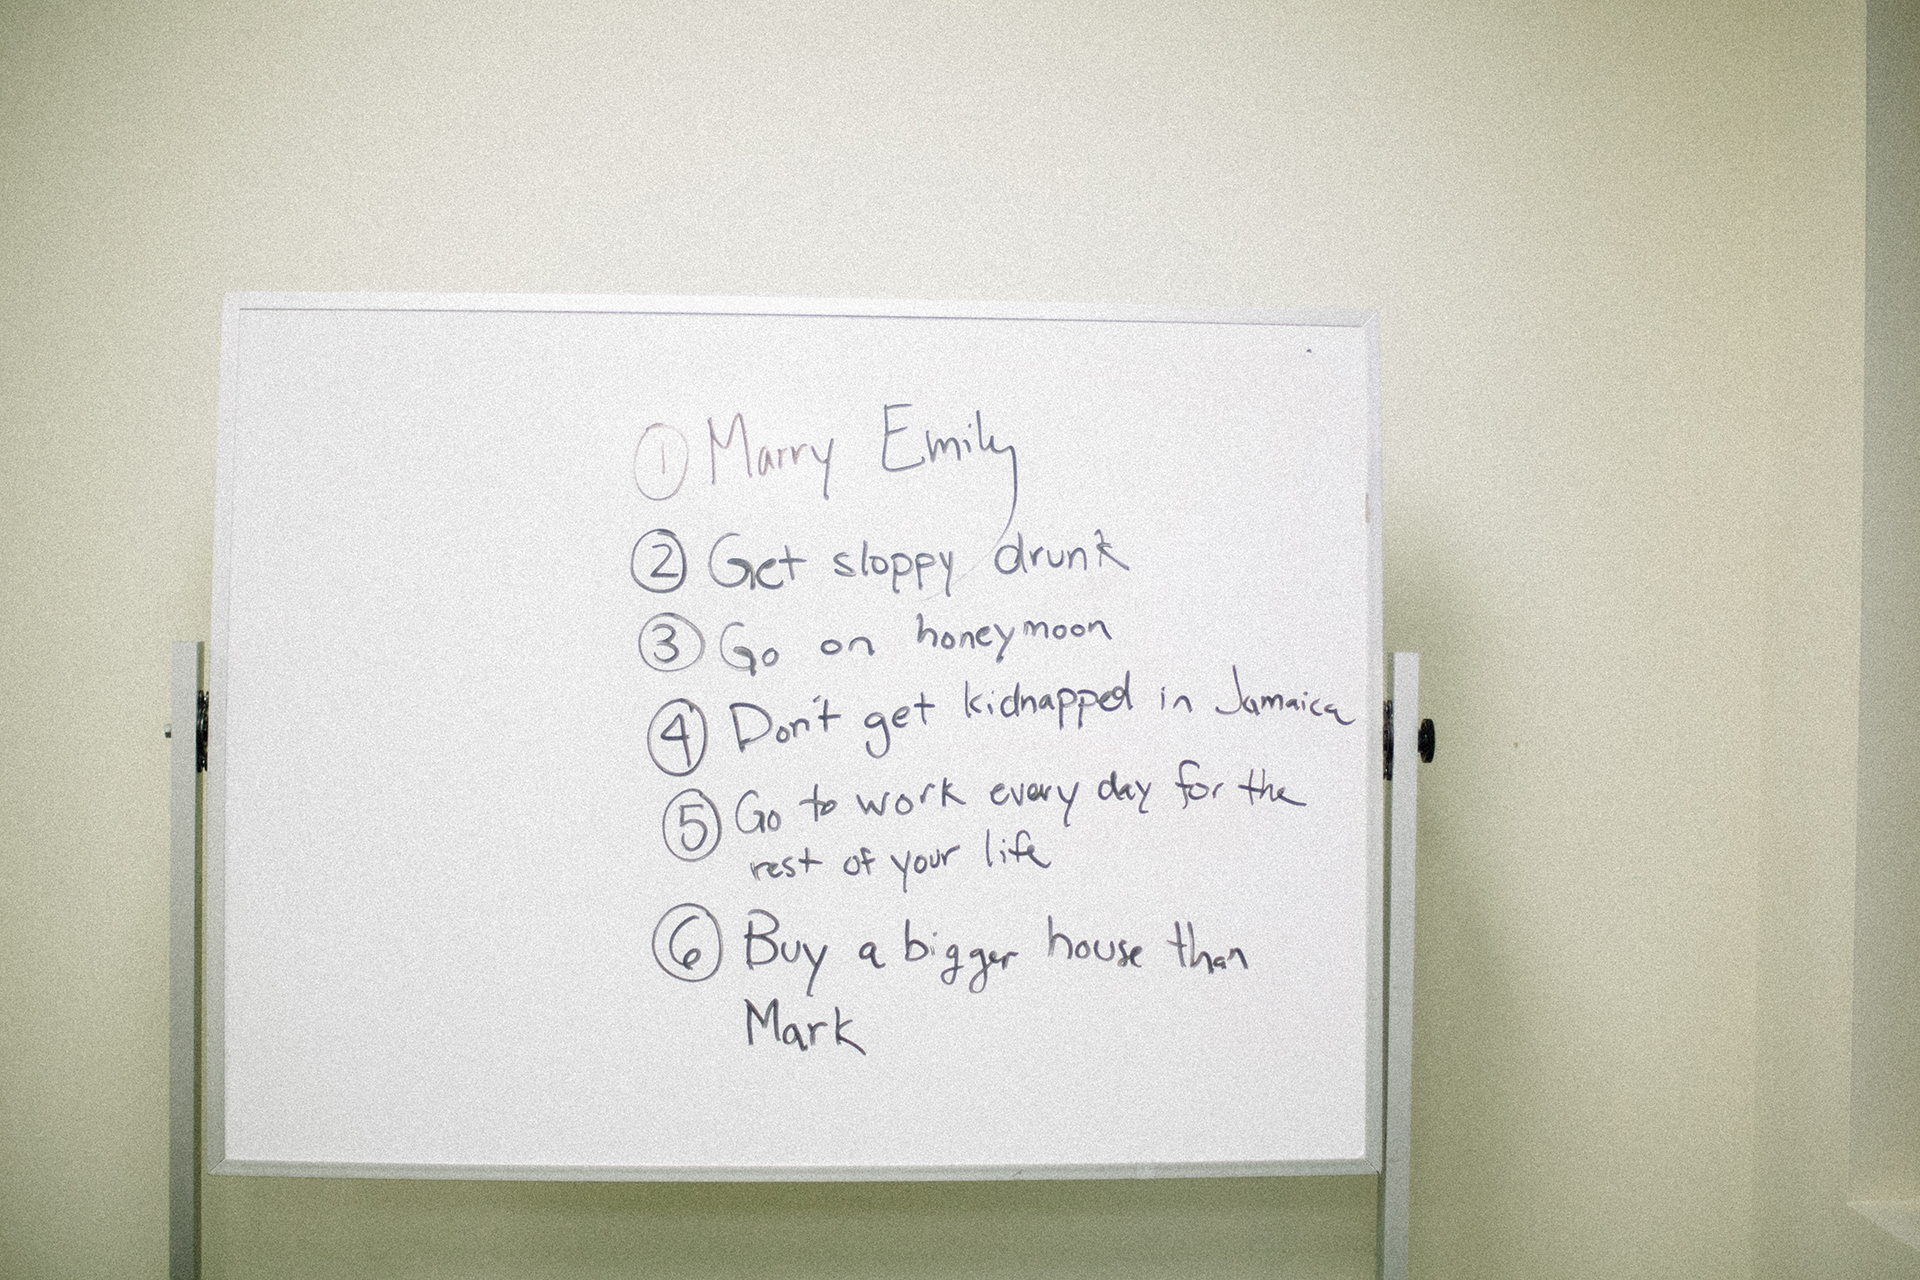 ① Marry Emily
② Get sloppy drunk
③ Go on honeymoon
④ Don't get kidnapped in Jamaica
⑤ Go to work every day for the
rest of your life
⑥ Buy a bigger house than
Mark